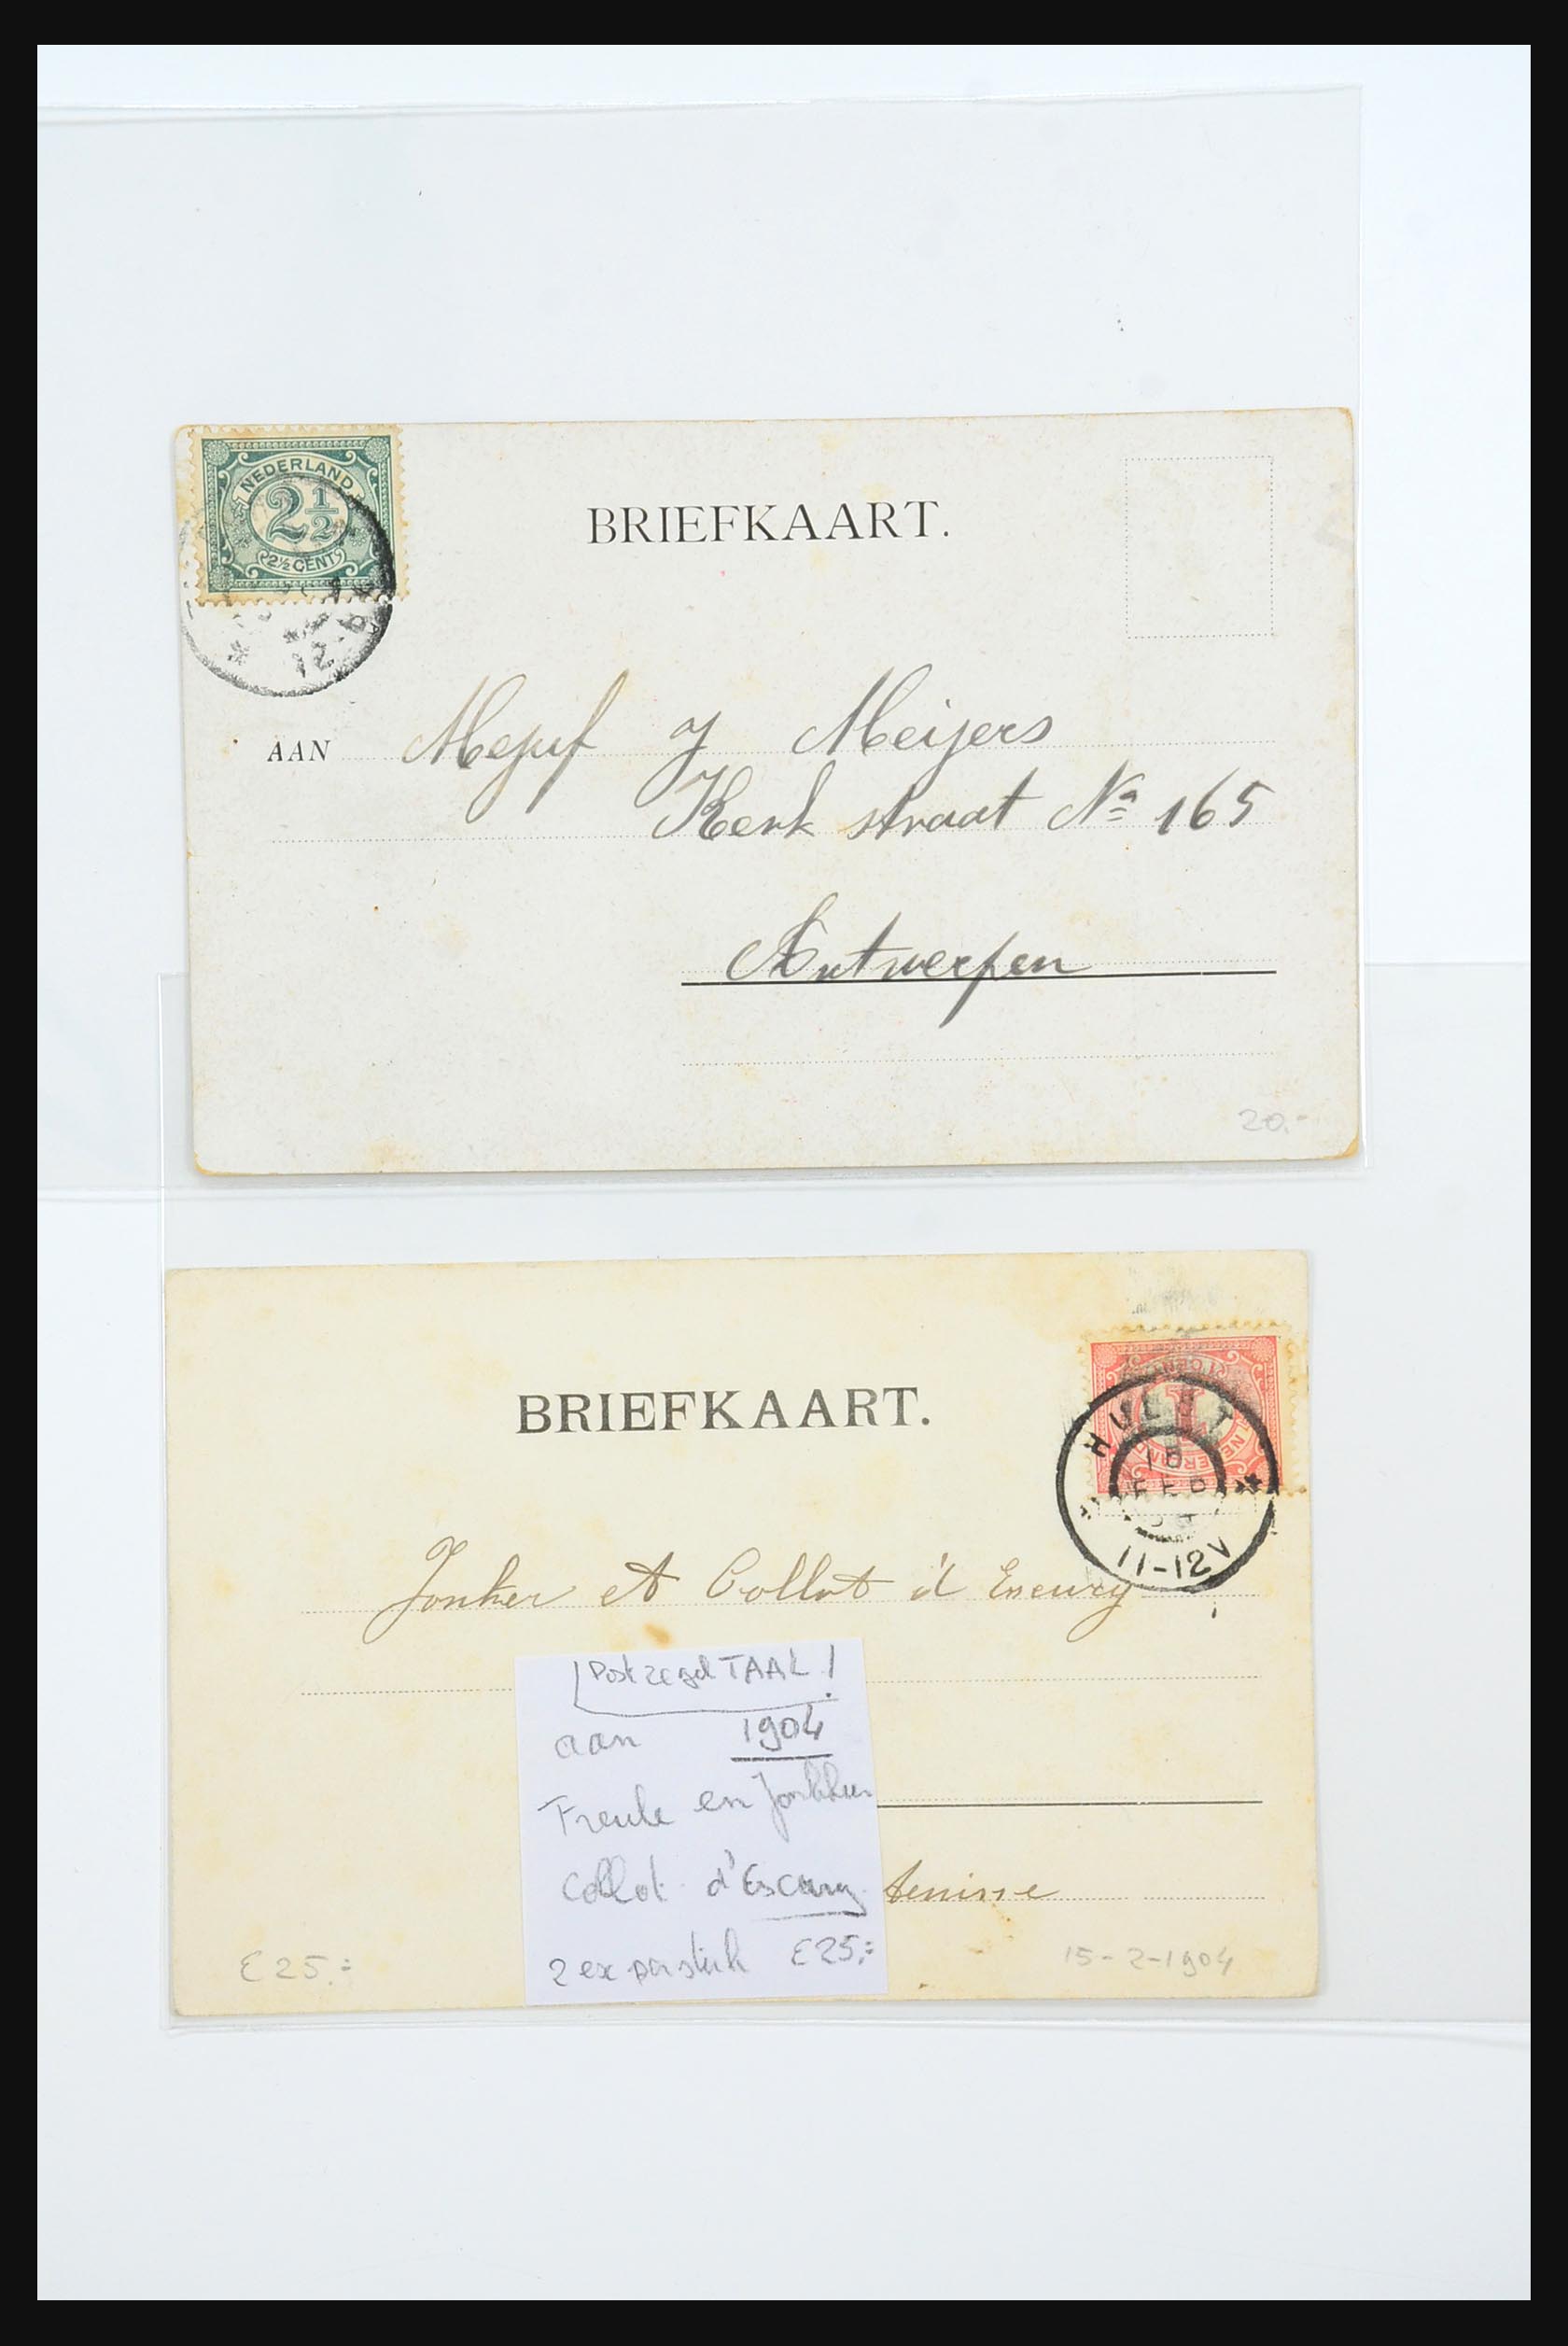 NEDERLAND
2½
2½ CENT
12
BRIEFKAART.
AAN Mejuf J Meijers
Kerk straat No 165
Antwerpen
20.-
BRIEFKAART.
1
HULST
18
FEB
11-12V
Jonker et Collot d'Escury
Postzegel TAAL!
aan 1904
Freule en Jonkheer
Collot d'Escury
2 ex per stuk £25,=
tenisse
£25.=
15-2-1904